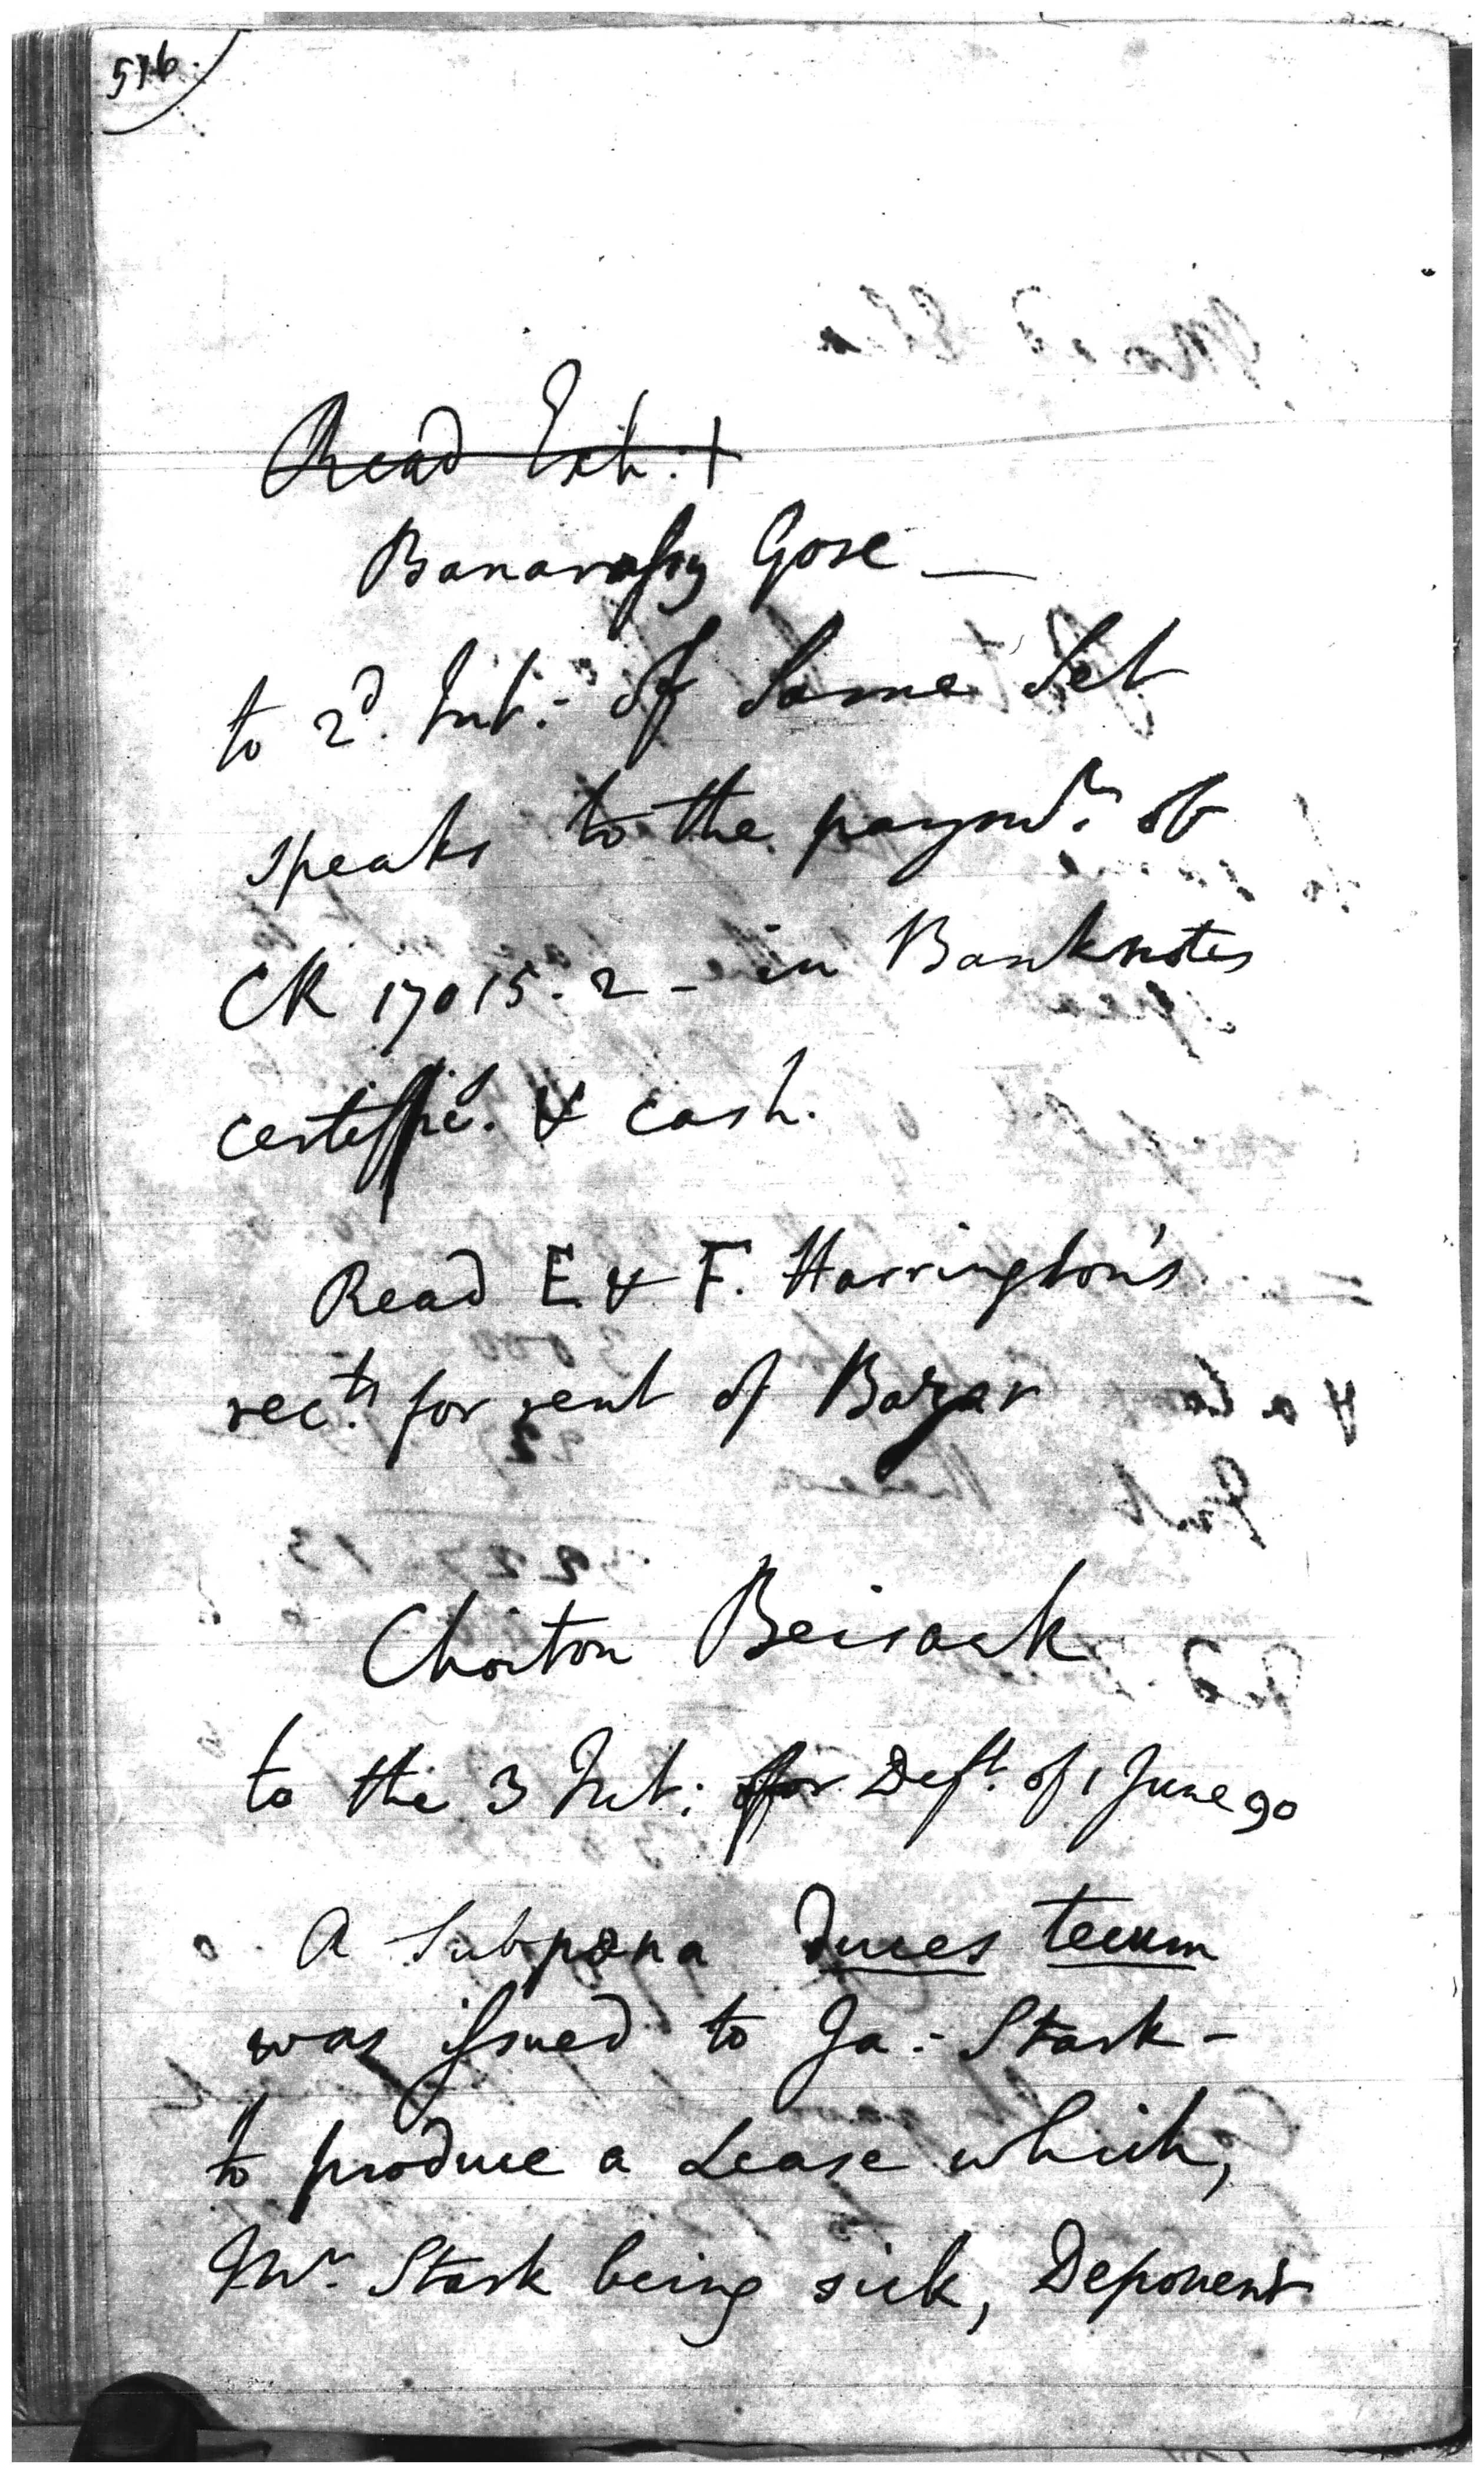 516.
Read Exh: +
Banarassy Gose —
to 2d. Int: of Same Set
speaks to the paymt. of
CR 17015.2 - in Banknotes
certific. & cash.
Read E & F. Harrington's
rects. for rent of Bazar
Choiton Beisack
to the 3 Int: for Deft. of 1 June 90
A Subpena Duces tecum
was issued to Ja: Stark -
to produce a Lease which,
Mr. Stark being sick, Deponent